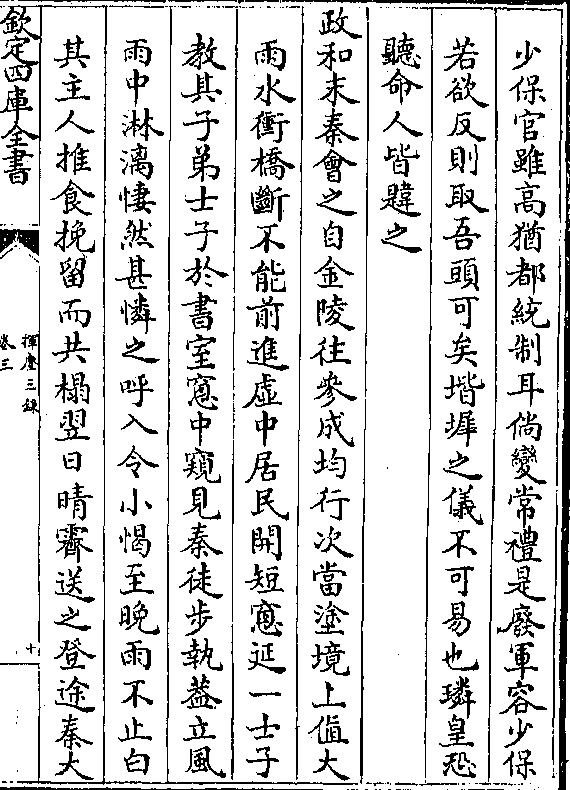 少保官雖高猶都統制耳倘變常禮是廢軍容少保
若欲反則取吾頭可矣堦墀之儀不可易也璘皇恐
聽命人皆韙之
政和末秦會之自金陵往參成均行次當塗境上值大
雨水衝橋斷不能前進虛中居民開短窻延一士子
教其子弟士子於書室窻中窺見秦徒步執蓋立風
雨中淋漓悽然甚憐之呼入令小憩至晚雨不止白
其主人推食挽留而共榻翌日晴霽送之登途秦大
欽定四庫全書
揮麈三錄
卷三
十